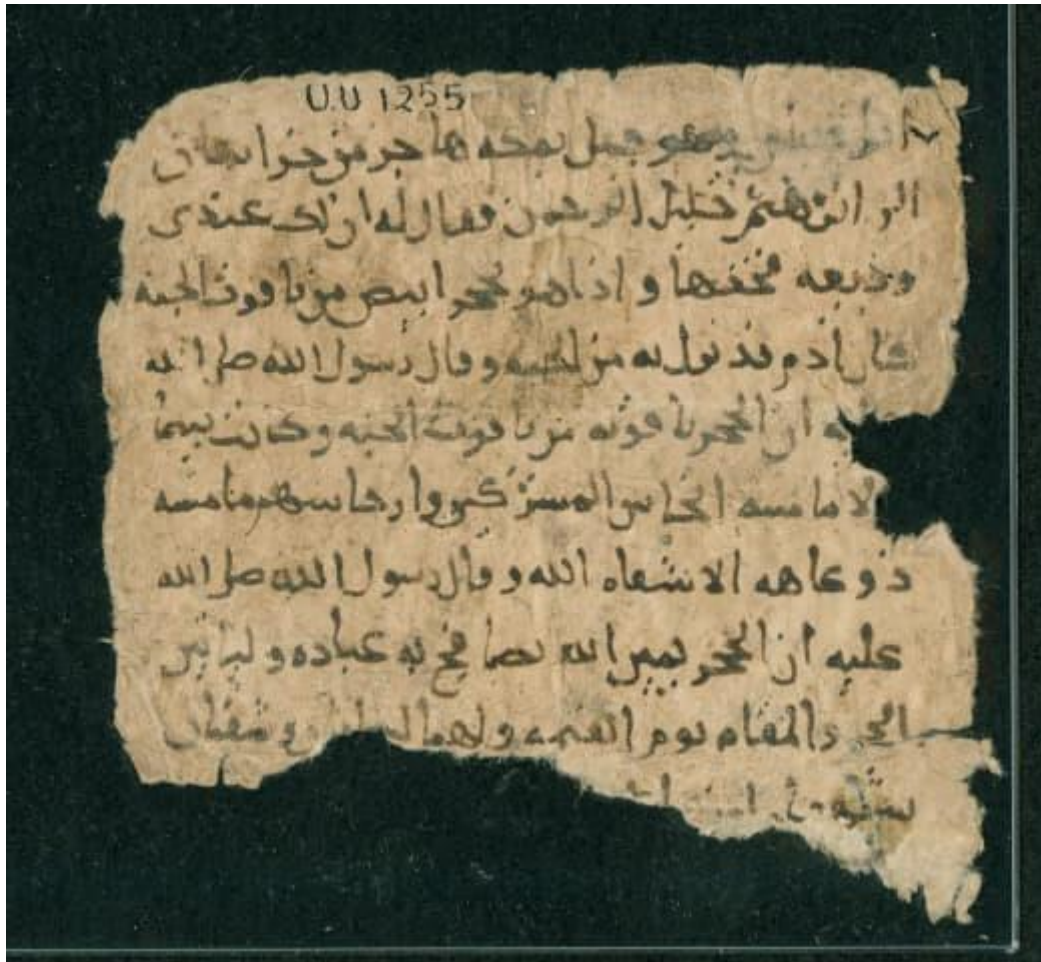 U.U 1255
جبل بمكه هاجر من خراسان
الى ابرهيم خليل الرحمن فقال له ان لك عندى
وديعه فخذها واذا هو بحجر ابيض من ياقوت الجنه
كان ادم قد نزل به من الجنه وقال رسول الله صلى الله
ان الحجر ياقوته من ياقوت الجنه وكانت
الا ما مسه انجاس المشركين وارجاسهم ما مسه
ذو عاهه الا شفاه الله وقال رسول الله صلى الله
عليه ان الحجر يمين الله يصافح به عباده ولياتين
الحجر والمقام يوم القيمه ولهما لسانان وشفتان